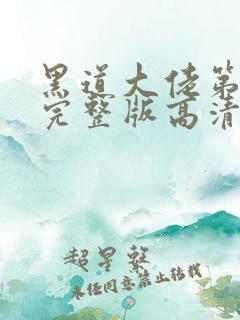 黑道大佬第
完整版高清
超星槃
未经同意禁止转载